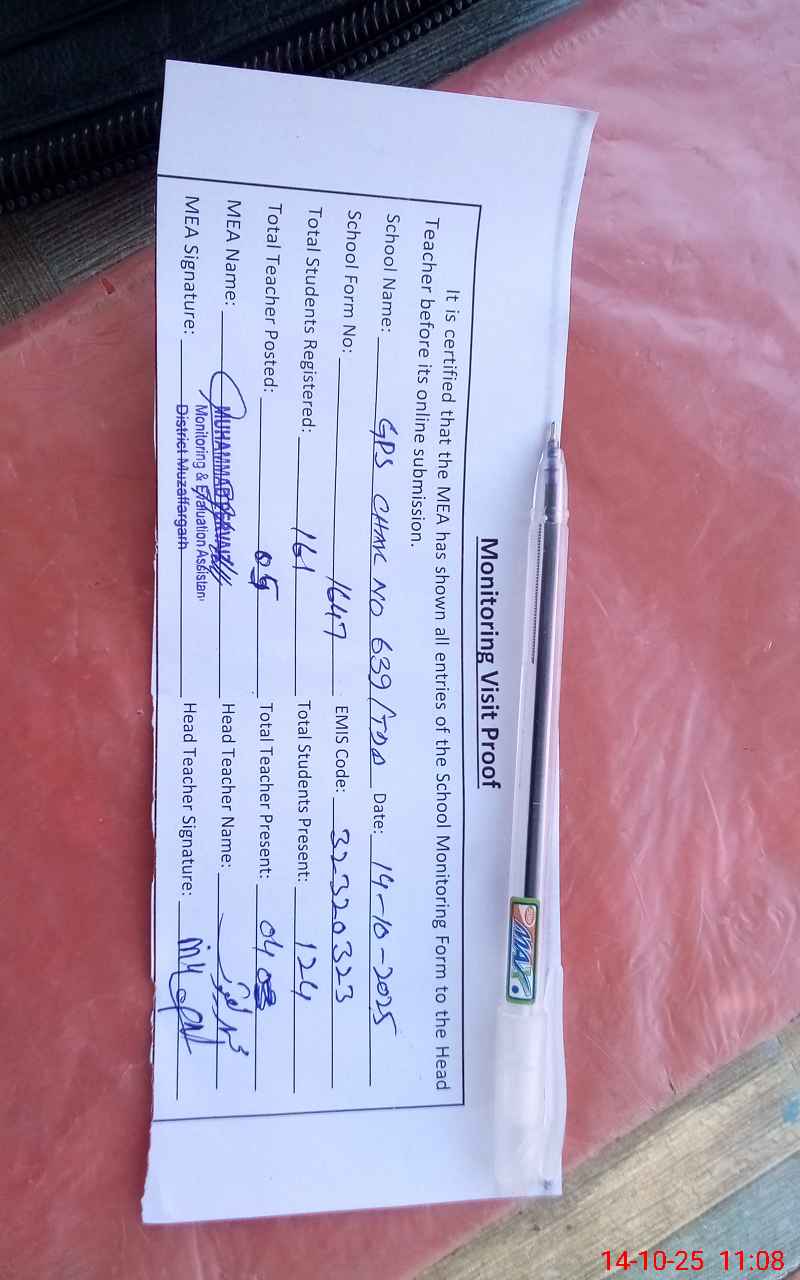 Monitoring Visit Proof
It is certified that the MEA has shown all entries of the School Monitoring Form to the Head
Teacher before its online submission.
School Name: GPS CHAK NO 639/TDA Date: 14-10-2025
School Form No: 1647 EMIS Code: 32320323
Total Students Registered: 161 Total Students Present: 124
Total Teacher Posted: 05 Total Teacher Present: 04
MEA Name: MUHAMMAD Head Teacher Name:
Monitoring & Evaluation Assistan
MEA Signature: District Muzaffargarh Head Teacher Signature:
MAX
14-10-25 11:08